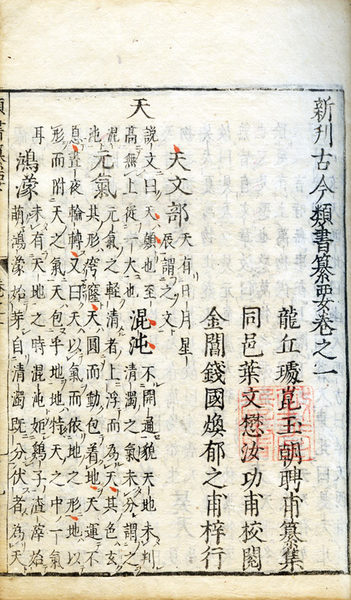 新刋古今類書纂要卷之一
龍丘璩崑玉朝聘甫纂集
同邑葉文懋汝功甫校閱
金閶錢國煥郁之甫梓行
天文部 天有日月星
辰謂之文
天 說文曰天顛也至
高無上從一大也 混沌 不開通貌天地未判
清濁之氣未分謂之
混
沌 元氣 元氣之輕清者上浮而為天其色玄
其形穹窿天圓而動包着地天運不
息晝夜輪轉又曰天以氣而依地之形地以
形而附天之氣天包乎地地特天之中一氣
耳 鴻濛 未有天地之時混沌如鷄子溟涬始
萌鴻濛始芽自清濁既分伏者為天